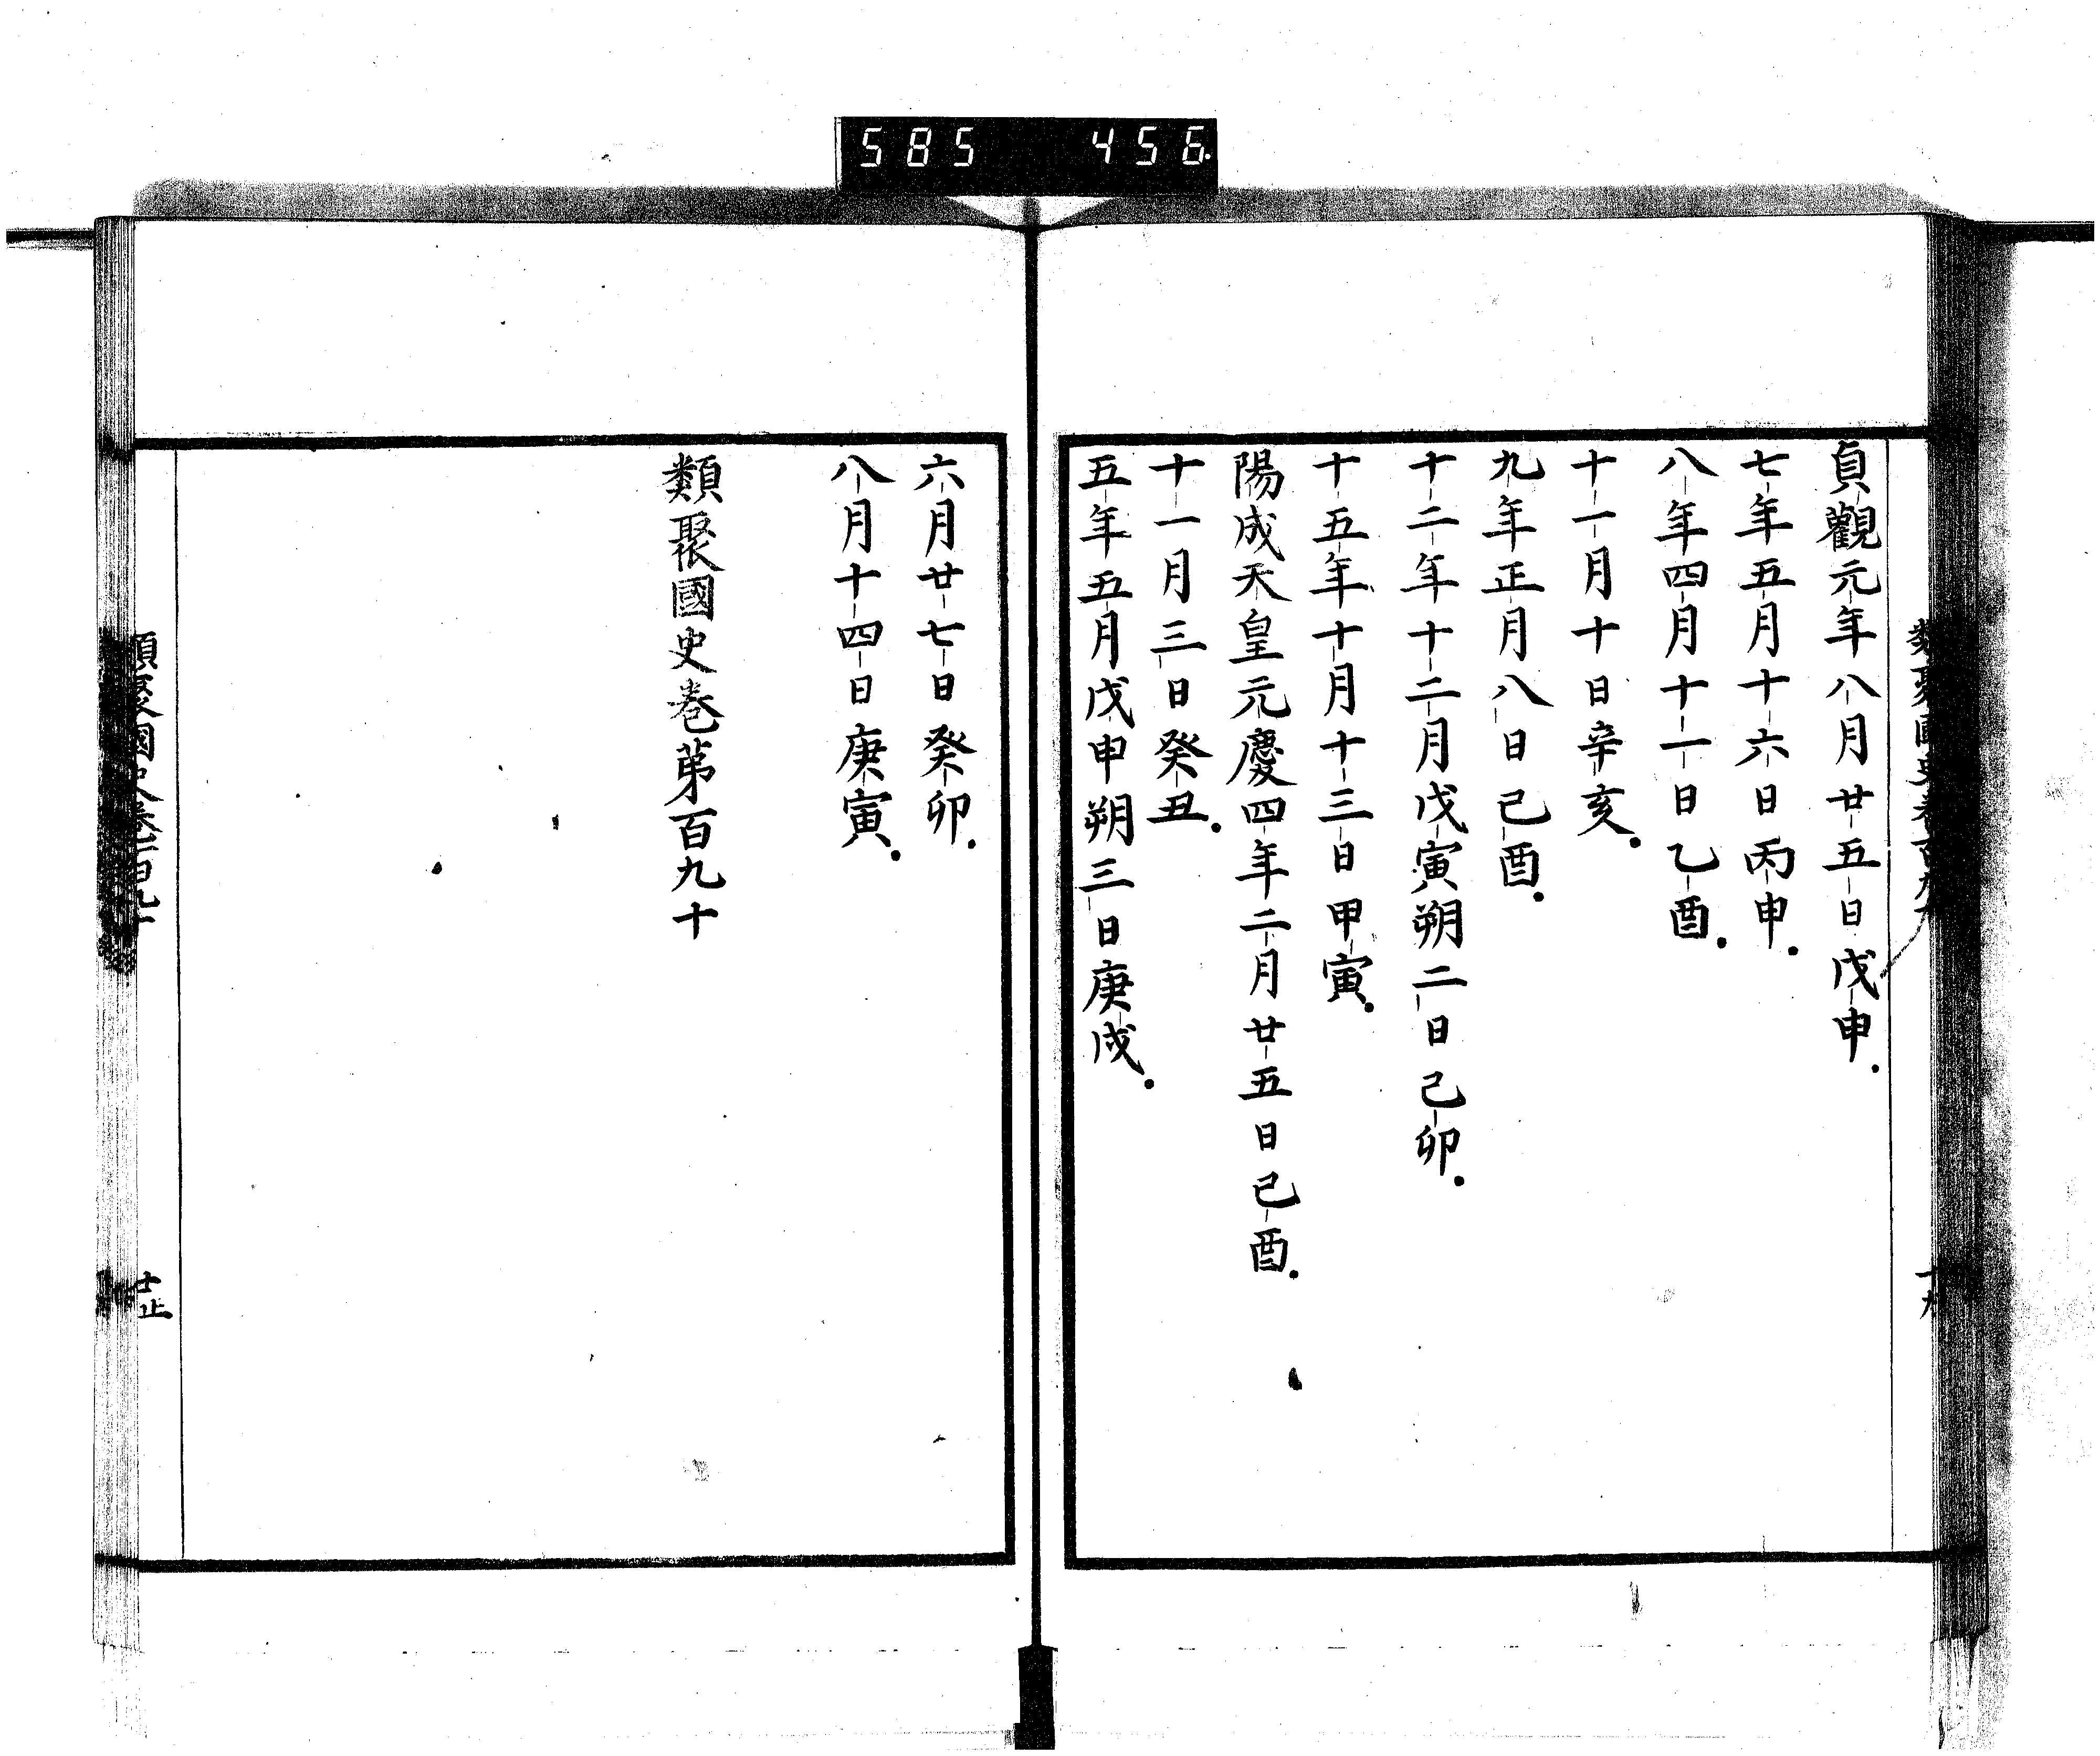 585 456
貞觀元年八月廿五日戊申.
七年五月十六日丙申.
八年四月十一日乙酉.
十一月十日辛亥.
九年正月八日己酉.
十二年十二月戊寅朔二日己卯.
十五年十月十三日甲寅.
陽成天皇元慶四年二月廿五日己酉.
十一月三日癸丑.
五年五月戊申朔三日庚戌.
六月廿七日癸卯.
八月十四日庚寅.
類聚國史巻第百九十
類聚國史卷百九十
止